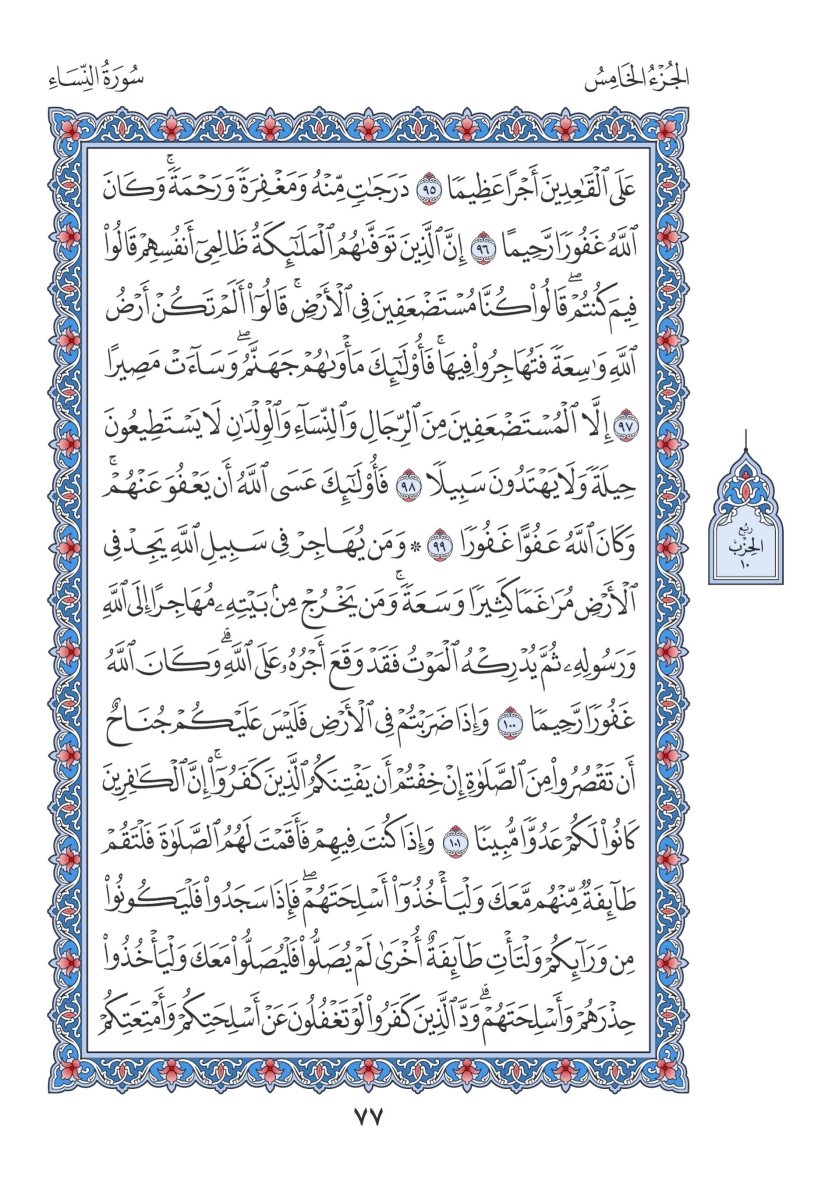 الجُزْءُ الخَامِسُ
سُورَةُ النِّسَاءِ
عَلَى ٱلۡقَٰعِدِينَ أَجۡرًا عَظِيمٗا ٩٥ دَرَجَٰتٖ مِّنۡهُ وَمَغۡفِرَةٗ وَرَحۡمَةٗۚ وَكَانَ
ٱللَّهُ غَفُورٗا رَّحِيمًا ٩٦ إِنَّ ٱلَّذِينَ تَوَفَّىٰهُمُ ٱلۡمَلَٰٓئِكَةُ ظَالِمِيٓ أَنفُسِهِمۡ قَالُواْ
فِيمَ كُنتُمۡۖ قَالُواْ كُنَّا مُسۡتَضۡعَفِينَ فِي ٱلۡأَرۡضِۚ قَالُوٓاْ أَلَمۡ تَكُنۡ أَرۡضُ
ٱللَّهِ وَٰسِعَةٗ فَتُهَاجِرُواْ فِيهَاۚ فَأُوْلَٰٓئِكَ مَأۡوَىٰهُمۡ جَهَنَّمُۖ وَسَآءَتۡ مَصِيرًا
٩٧ إِلَّا ٱلۡمُسۡتَضۡعَفِينَ مِنَ ٱلرِّجَالِ وَٱلنِّسَآءِ وَٱلۡوِلۡدَٰنِ لَا يَسۡتَطِيعُونَ
حِيلَةٗ وَلَا يَهۡتَدُونَ سَبِيلٗا ٩٨ فَأُوْلَٰٓئِكَ عَسَى ٱللَّهُ أَن يَعۡفُوَ عَنۡهُمۡۚ
وَكَانَ ٱللَّهُ عَفُوًّا غَفُورٗا ٩٩ * وَمَن يُهَاجِرۡ فِي سَبِيلِ ٱللَّهِ يَجِدۡ فِي
ٱلۡأَرۡضِ مُرَٰغَمٗا كَثِيرٗا وَسَعَةٗۚ وَمَن يَخۡرُجۡ مِنۢ بَيۡتِهِۦ مُهَاجِرًا إِلَى ٱللَّهِ
وَرَسُولِهِۦ ثُمَّ يُدۡرِكۡهُ ٱلۡمَوۡتُ فَقَدۡ وَقَعَ أَجۡرُهُۥ عَلَى ٱللَّهِۗ وَكَانَ ٱللَّهُ
غَفُورٗا رَّحِيمٗا ١٠٠ وَإِذَا ضَرَبۡتُمۡ فِي ٱلۡأَرۡضِ فَلَيۡسَ عَلَيۡكُمۡ جُنَاحٌ
أَن تَقۡصُرُواْ مِنَ ٱلصَّلَوٰةِ إِنۡ خِفۡتُمۡ أَن يَفۡتِنَكُمُ ٱلَّذِينَ كَفَرُوٓاْۚ إِنَّ ٱلۡكَٰفِرِينَ
كَانُواْ لَكُمۡ عَدُوّٗا مُّبِينٗا ١٠١ وَإِذَا كُنتَ فِيهِمۡ فَأَقَمۡتَ لَهُمُ ٱلصَّلَوٰةَ فَلۡتَقُمۡ
طَآئِفَةٞ مِّنۡهُم مَّعَكَ وَلۡيَأۡخُذُوٓاْ أَسۡلِحَتَهُمۡۖ فَإِذَا سَجَدُواْ فَلۡيَكُونُواْ
مِن وَرَآئِكُمۡ وَلۡتَأۡتِ طَآئِفَةٌ أُخۡرَىٰ لَمۡ يُصَلُّواْ فَلۡيُصَلُّواْ مَعَكَ وَلۡيَأۡخُذُواْ
حِذۡرَهُمۡ وَأَسۡلِحَتَهُمۡۗ وَدَّ ٱلَّذِينَ كَفَرُواْ لَوۡ تَغۡفُلُونَ عَنۡ أَسۡلِحَتِكُمۡ وَأَمۡتِعَتِكُمۡ
ربع
الحزب
١٠
٧٧